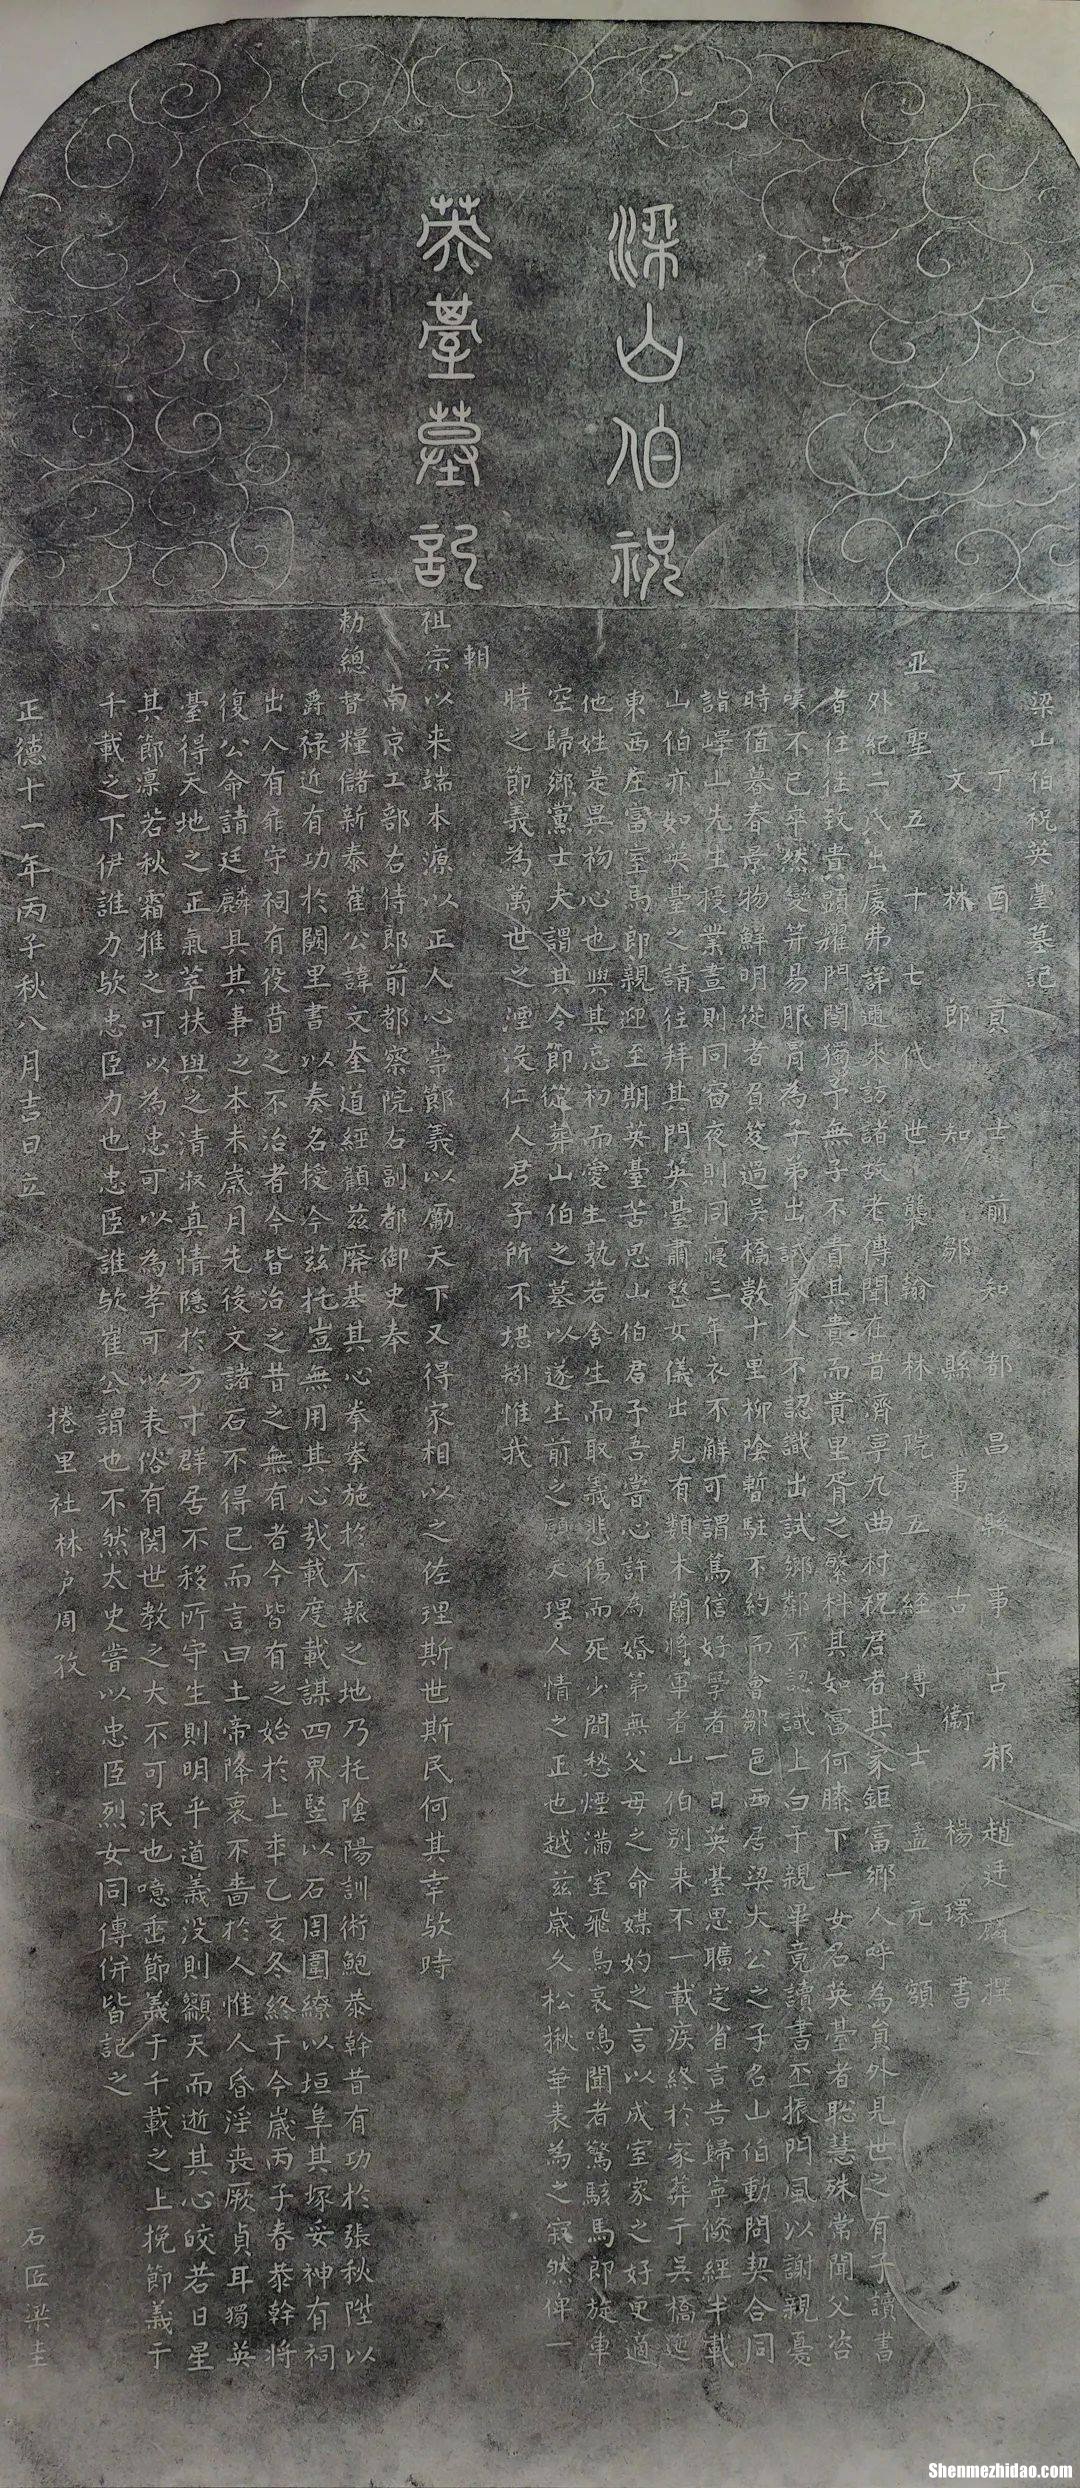 梁山伯祝
英臺墓記
梁山伯祝英臺墓記
丁酉貢士前知都昌縣事古邾趙廷麟撰
文林郎知鄒縣事古衞楊環書
亞聖五十七代世襲翰林院五經博士孟元額
外紀二氏出處弗詳邇來訪諸故老傳聞在昔濟寧九曲村祝君者其家鉅富鄉人呼為員外見世之有子讀書
者往往致貴顯耀門閭獨予無子不貴其貴而貴里胥之繁科其如富何膝下一女名英臺者聰慧殊常聞父咨
嘆不已卒然變笄易服冐為子弟出試家人不認識出試鄉鄰不認識上白于親畢竟讀書丕振門風以謝親憂
時值暮春景物鮮明從者負笈過吳橋數十里柳陰暫駐不約而會鄒邑西居梁太公之子名山伯動問契合同
詣嶧山先生授業晝則同窗夜則同寢三年衣不解可謂篤信好學者一日英臺思曠定省言告歸寧倐經半載
山伯亦如英臺之請往拜其門英臺肅整女儀出見有類木蘭將軍者山伯别来不一載疾終於家葬于吳橋迤
東西庄富室馬郎親迎至期英臺苦思山伯君子吾嘗心許為婚第無父母之命媒妁之言以成室家之好更適
他姓是異初心也與其忘初而愛生孰若舍生而取義悲傷而死少間愁煙滿室飛鳥哀鳴聞者驚駭馬郎旋車
空歸鄉黨士夫謂其令節從葬山伯之墓以遂生前之願天理人情之正也越茲歲久松揪華表為之寂然俾一
時之節義為萬世之湮沒仁人君子所不堪矧惟我
朝
祖宗以来端本源以正人心崇節義以勵天下又得家相以之佐理斯世斯民何其幸欤時
南京工部右侍郎前都察院右副都御史奉
勅總督糧儲新泰崔公諱文奎道經顧茲廢基其心拳拳施於不報之地乃托陰陽訓術鮑恭幹昔有功於張秋陞以
爵禄近有功於闕里書以奏名授今茲托豈無用其心哉載度載謀四界竪以石周圍繚以垣阜其塚妥神有祠
出入有扉守祠有役昔之不治者今皆治之昔之無有者今皆有之始於上年乙亥冬終于今歲丙子春恭幹將
復公命請廷麟具其事之本末歲月先後文諸石不得已而言曰土帝降衷不啬於人惟人昏淫丧厥貞耳獨英
臺得天地之正氣萃扶輿之清淑真情隱於方寸群居不移所守生則明乎道義没則顲天而逝其心皎若日星
其節凛若秋霜推之可以為忠可以為孝可以表俗有関世教之大不可泯也噫垂節義于千載之上挽節義于
千載之下伊誰力欤忠臣力也忠臣誰欤崔公謂也不然太史嘗以忠臣烈女同傳併皆記之
捲里社林户周孜
正德十一年丙子秋八月吉日立
石匠梁圭
Shenmezhidao.com